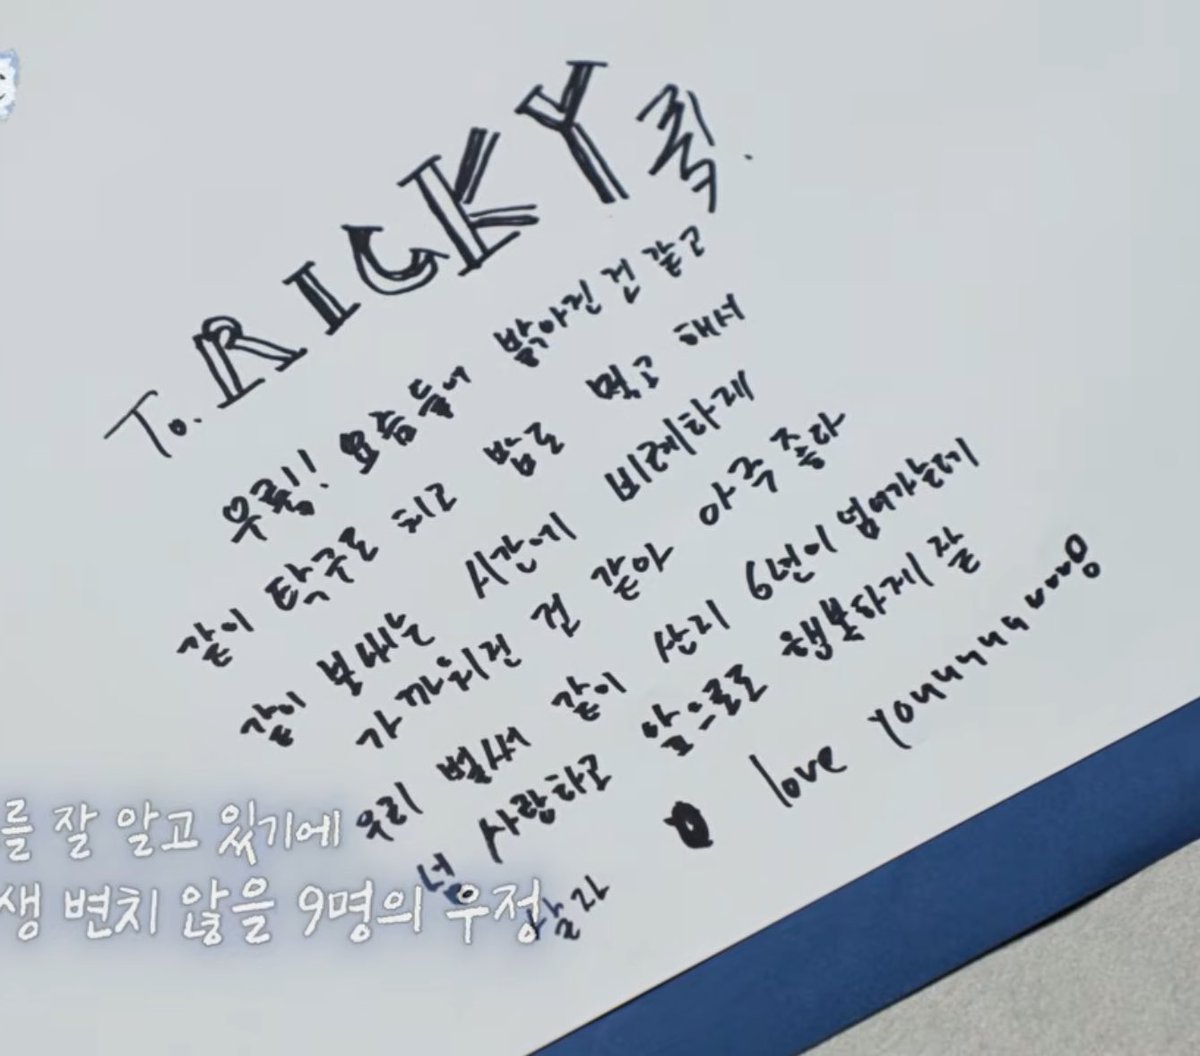 To. RICKY 릭.
우릭! 요즘들어 밝아진 건 같고
같이 탁구도 치고 밥도 먹고 해서
같이 보내는 시간에 비례하게
가까워진 건 같아 아주 좋다
우리 벌써 같이 산지 6년이 넘어가는데
넘 사랑하고 앞으로도 행복하게 잘
살자 love
를 잘 알고 있기에
생 변치 않을 9명의 우정